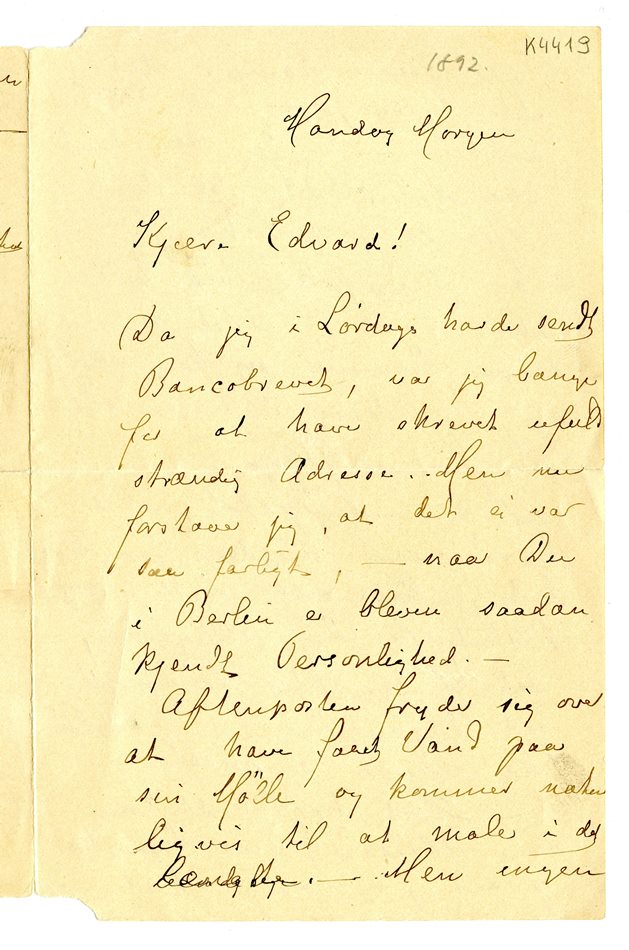 K4419
1892.
Mandag Morgen
Kjære Edvard!
Da jeg i Lørdags havde sendt
Bancobrevet, var jeg bange
for at have skrevet ufuld
stændig Adresse. Men nu
forstaar jeg, at det ei var
saa farligt, – naar Du
i Berlin er bleven saadan
kjendt Personlighed. –
Aftenposten fryder sig over
at have faaet Vand paa
sin Mölle og kommer naturligvis
til at male i det
– Men ingen